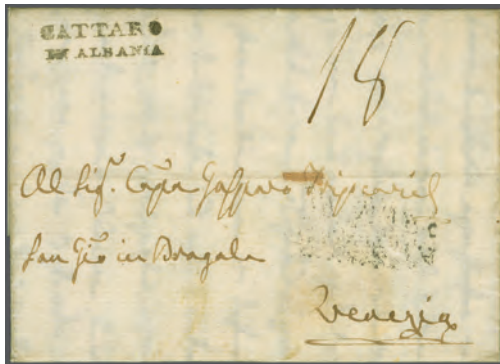 CATTARO
IN ALBANIA
18
Al Sig.r Cap.n Gasparo Tripcovich
San Gio in Bragola
Venezia